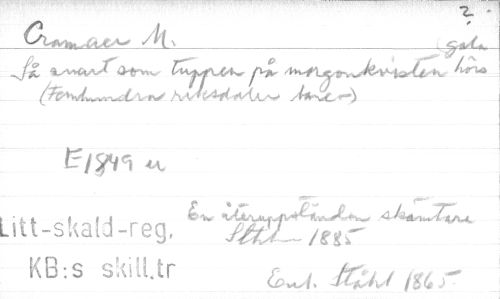 ?
Cramaer M.
gala
Så snart som tuppen på morgonkvisten hörs
(Femhundra riksdaler banco)
E1849 u
En återuppstånden skämtare
Litt-skald-reg. Sthlm 1885
KB:s skill.tr
Enl. Ståhl 1865.